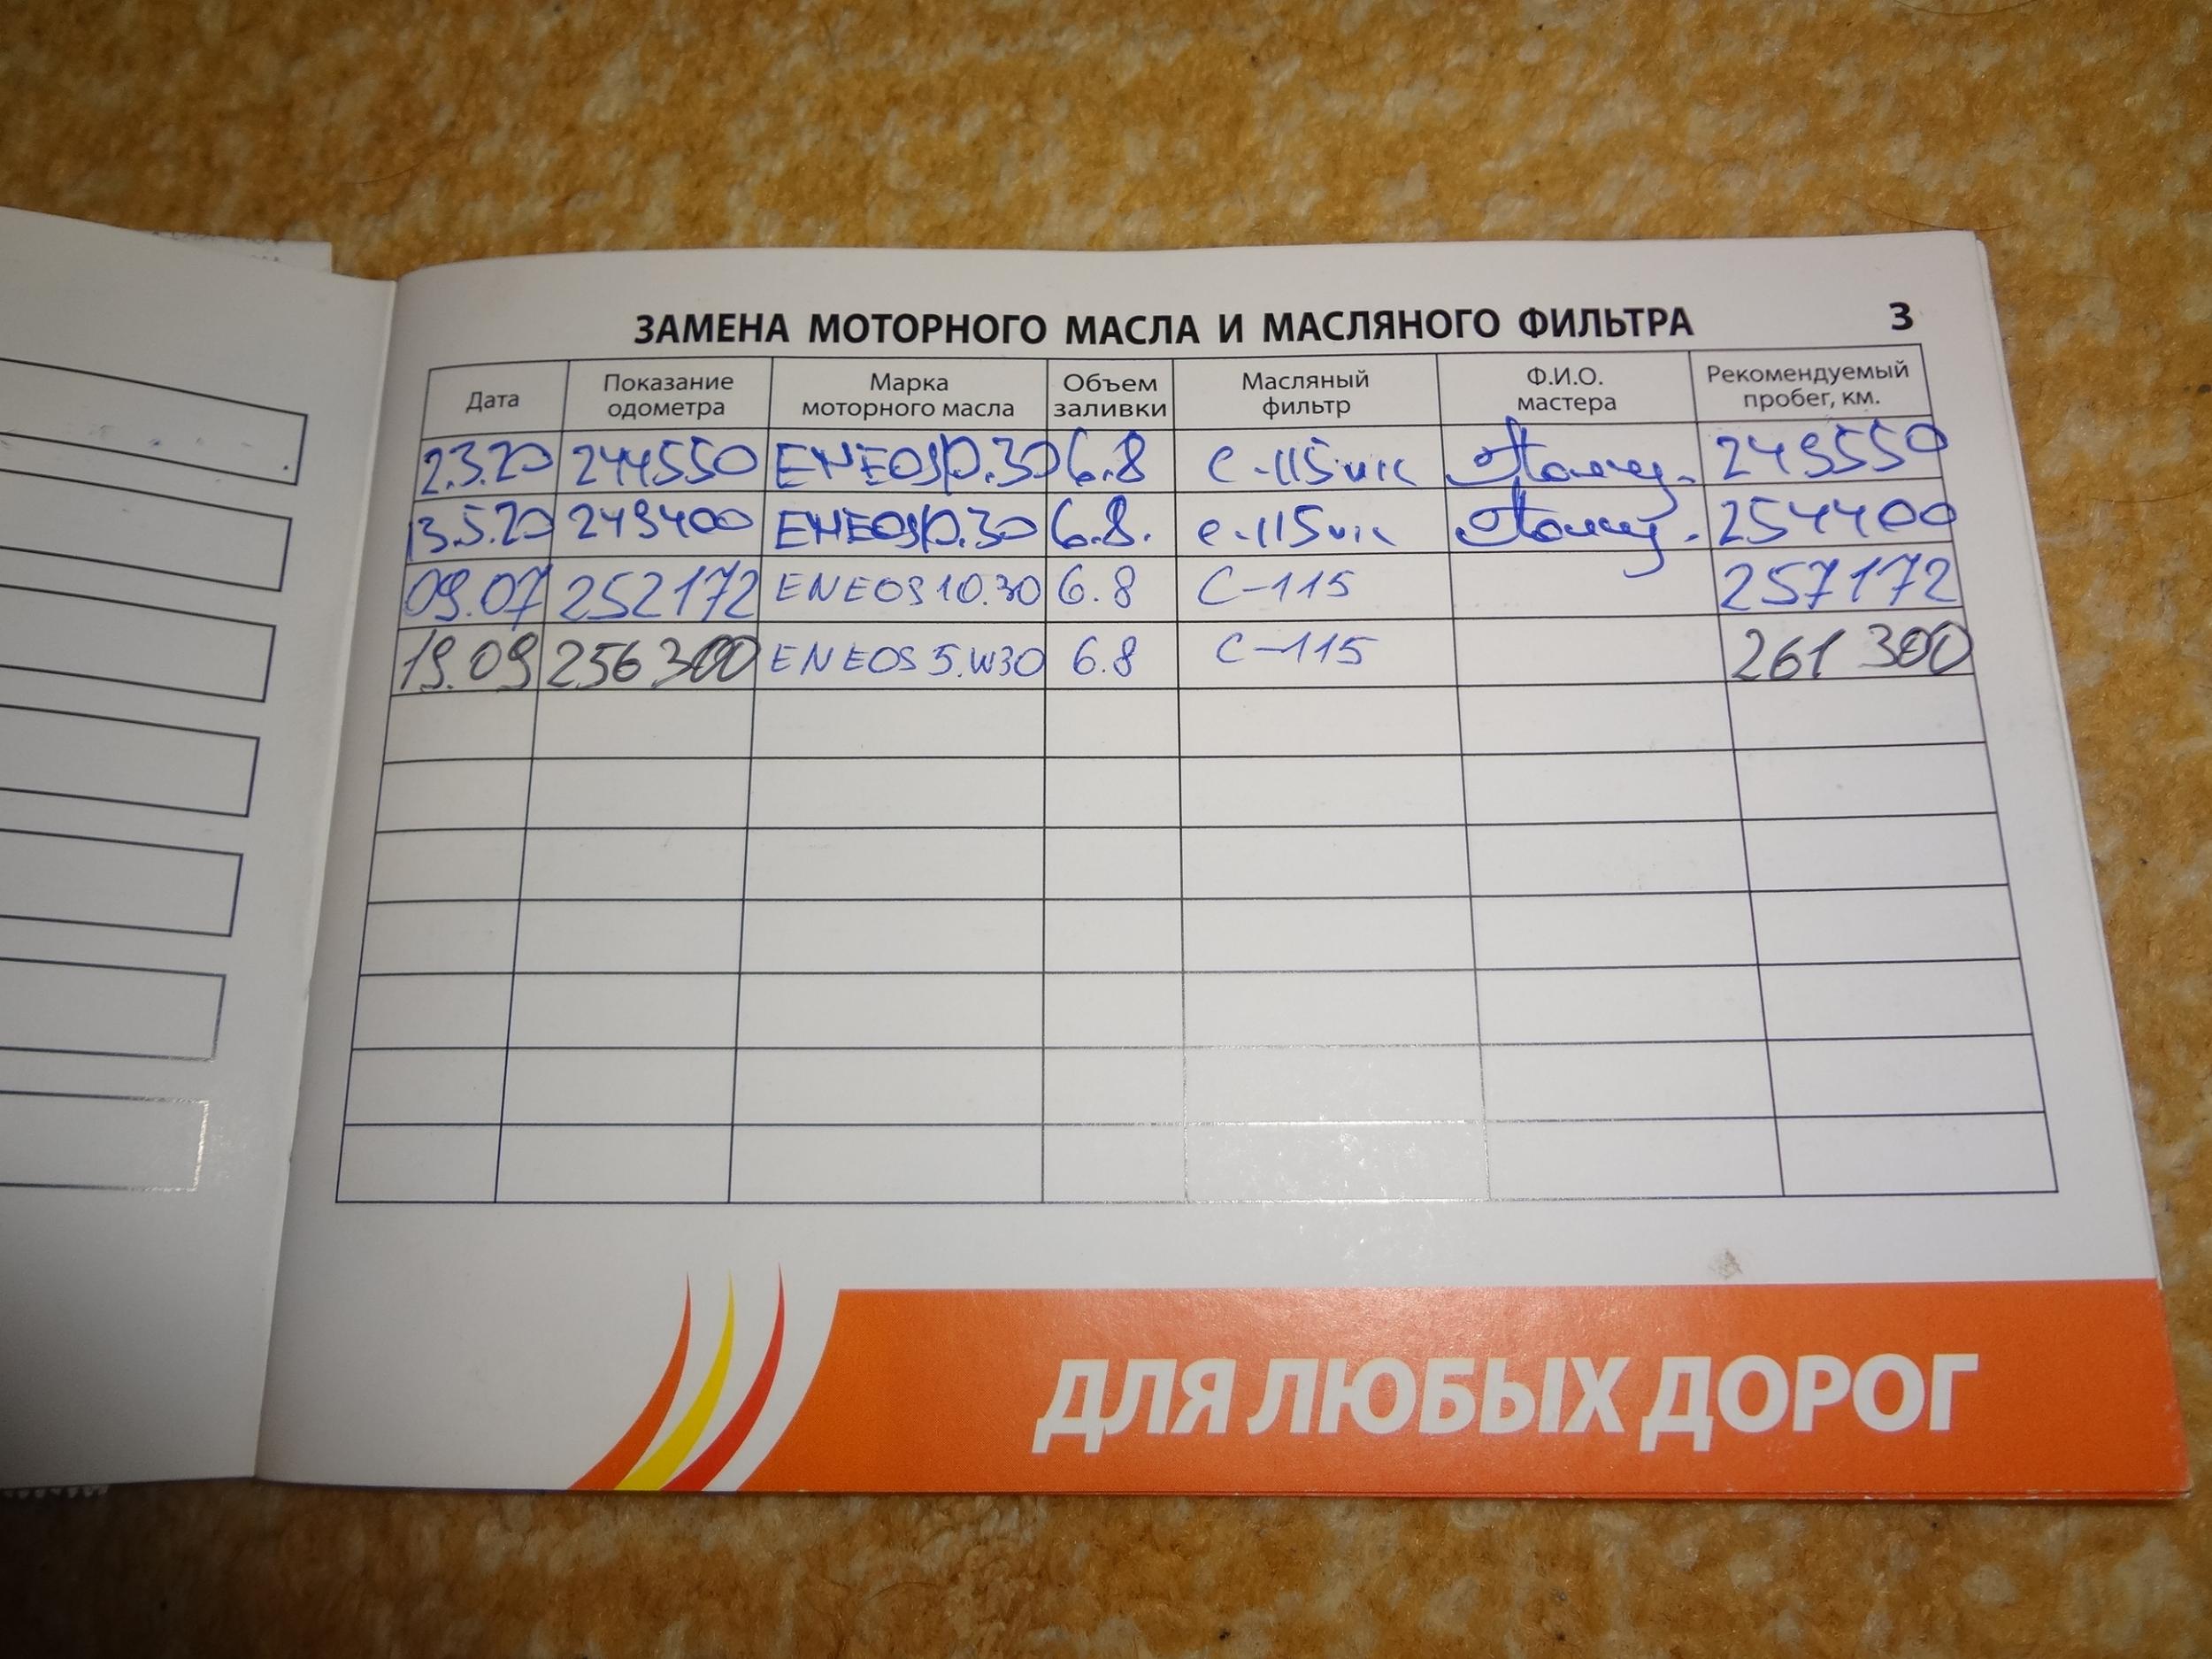 ЗАМЕНА МОТОРНОГО МАСЛА И МАСЛЯНОГО ФИЛЬТРА 3
Дата Показание одометра Марка моторного масла Объем заливки Масляный фильтр Ф.И.О. мастера Рекомендуемый пробег, км.
2.3.20 244550 ENEOS 10.30 6.8 C-115 VIC 249550
13.5.20 249400 ENEOS 10.30 6.8. C-115 VIC 254400
09.07 252172 ENEOS 10.30 6.8 C-115 257172
19.09 256300 ENEOS 5.W30 6.8 C-115 261 300
ДЛЯ ЛЮБЫХ ДОРОГ